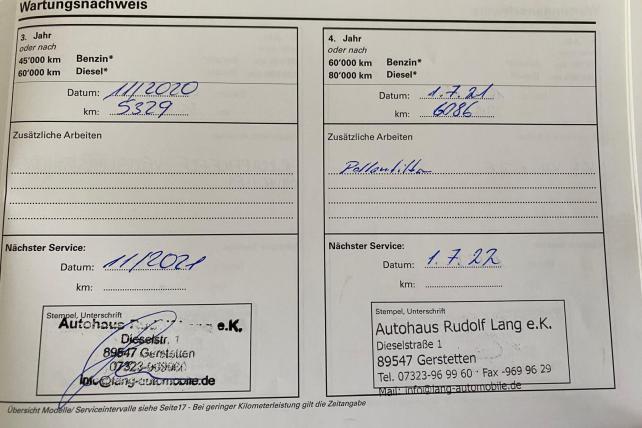 Wartungsnachweis
3. Jahr
oder nach
45'000 km Benzin*
60'000 km Diesel*
Datum: 11/2020
km: 5329
Zusätzliche Arbeiten
Nächster Service:
Datum: 11/2021
km:
Stempel, Unterschrift
Autohaus Rudolf Lang e.K.
Dieselstr. 1
89547 Gerstetten
07323-969960
info@lang-automobile.de
4. Jahr
oder nach
60'000 km Benzin*
80'000 km Diesel*
Datum: 1.7.21
km: 6086
Zusätzliche Arbeiten
Pollenfilter
Nächster Service:
Datum: 1.7.22
km:
Stempel, Unterschrift
Autohaus Rudolf Lang e.K.
Dieselstraße 1
89547 Gerstetten
Tel. 07323-96 99 60 · Fax -969 96 29
Mail: info@lang-automobile.de
Übersicht Modelle/ Serviceintervalle siehe Seite17 - Bei geringer Kilometerleistung gilt die Zeitangabe